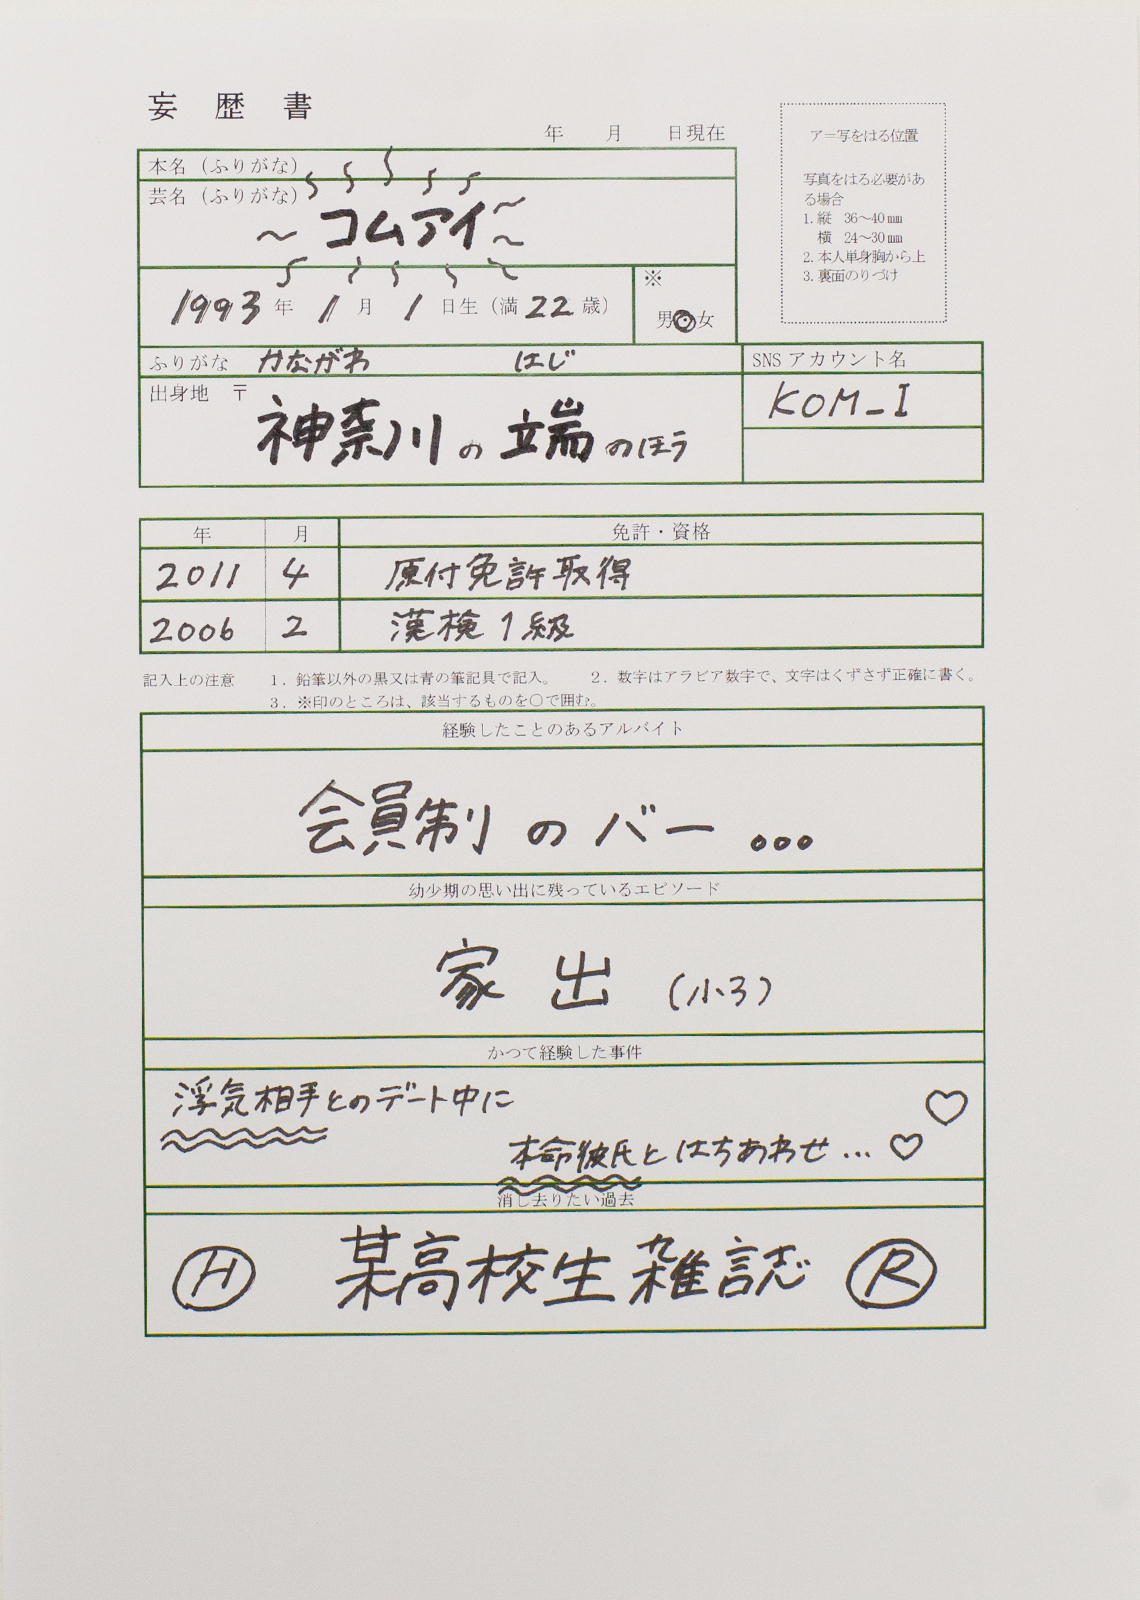 妄歴書
年 月 日現在
ア=写をはる位置
写真をはる必要があ
る場合
1. 縦 36～40㎜
横 24～30㎜
2. 本人単身胸から上
3. 裏面のりづけ
本名（ふりがな）
芸名（ふりがな）
～コムアイ～
1993年 1月 1日生（満22歳）
※
男・女
ふりがな かながわ はじ
出身地 〒
神奈川の端のほう
SNS アカウント名
KOM_I
年 月 免許・資格
2011 4 原付免許取得
2006 2 漢検1級
記入上の注意 1．鉛筆以外の黒又は青の筆記具で記入。 2．数字はアラビア数字で、文字はくずさず正確に書く。
3．※印のところは、該当するものを〇で囲む。
経験したことのあるアルバイト
会員制のバー...
幼少期の思い出に残っているエピソード
家出（小3）
かつて経験した事件
浮気相手とのデート中に
本命彼氏とはちあわせ...♡♡
消し去りたい過去
Ⓗ 某高校生雑誌 Ⓡ